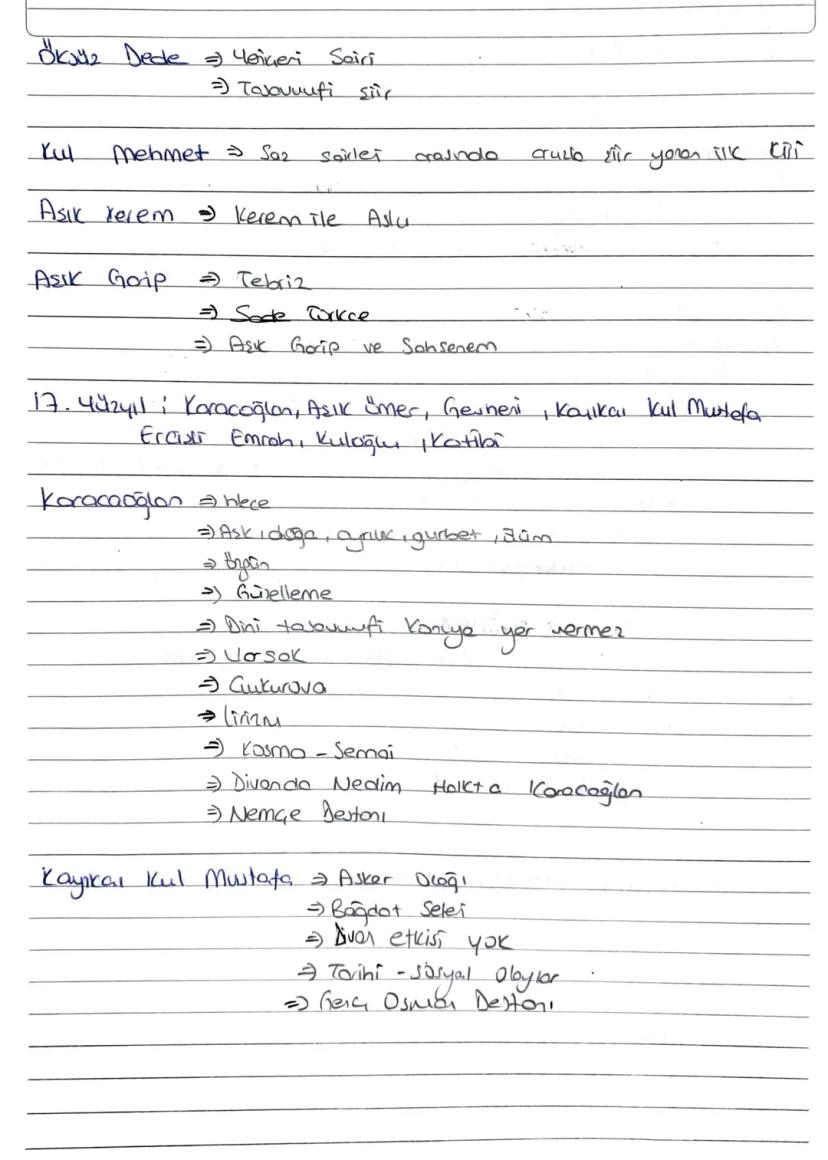 Öksüz Dede ⇒ Yeniçeri Şairi
⇒ Tasavvufi şiir
Kul Mehmet ⇒ Saz şairleri arasında aruzla şiir yazan ilk kişi
Aşık Kerem ⇒ Kerem ile Aslı
Aşık Garip ⇒ Tebriz
⇒ Sade Türkçe
⇒ Aşık Garip ve Şahsenem
17. Yüzyıl : Karacoğlan, Aşık Ömer, Gevheri, Kayıkçı Kul Mustafa
Ercişli Emrah, Kuloğlu, Katibi
Karacaoğlan ⇒ hece
⇒ Aşk, doğa, ayrılık, gurbet, ölüm
⇒ Özgün
⇒ Güzelleme
⇒ Dini tasavvufi konuya yer vermez
⇒ Varsak
⇒ Çukurova
⇒ lirizm
⇒ Koşma - Semai
⇒ Divanda Nedim Halkta Karacoğlan
⇒ Nemçe Destanı
Kayıkçı Kul Mustafa ⇒ Asker Ocağı
⇒ Bağdat Seferi
⇒ Divan etkisi yok
⇒ Tarihi - sosyal olaylar
⇒ Genç Osman Destanı